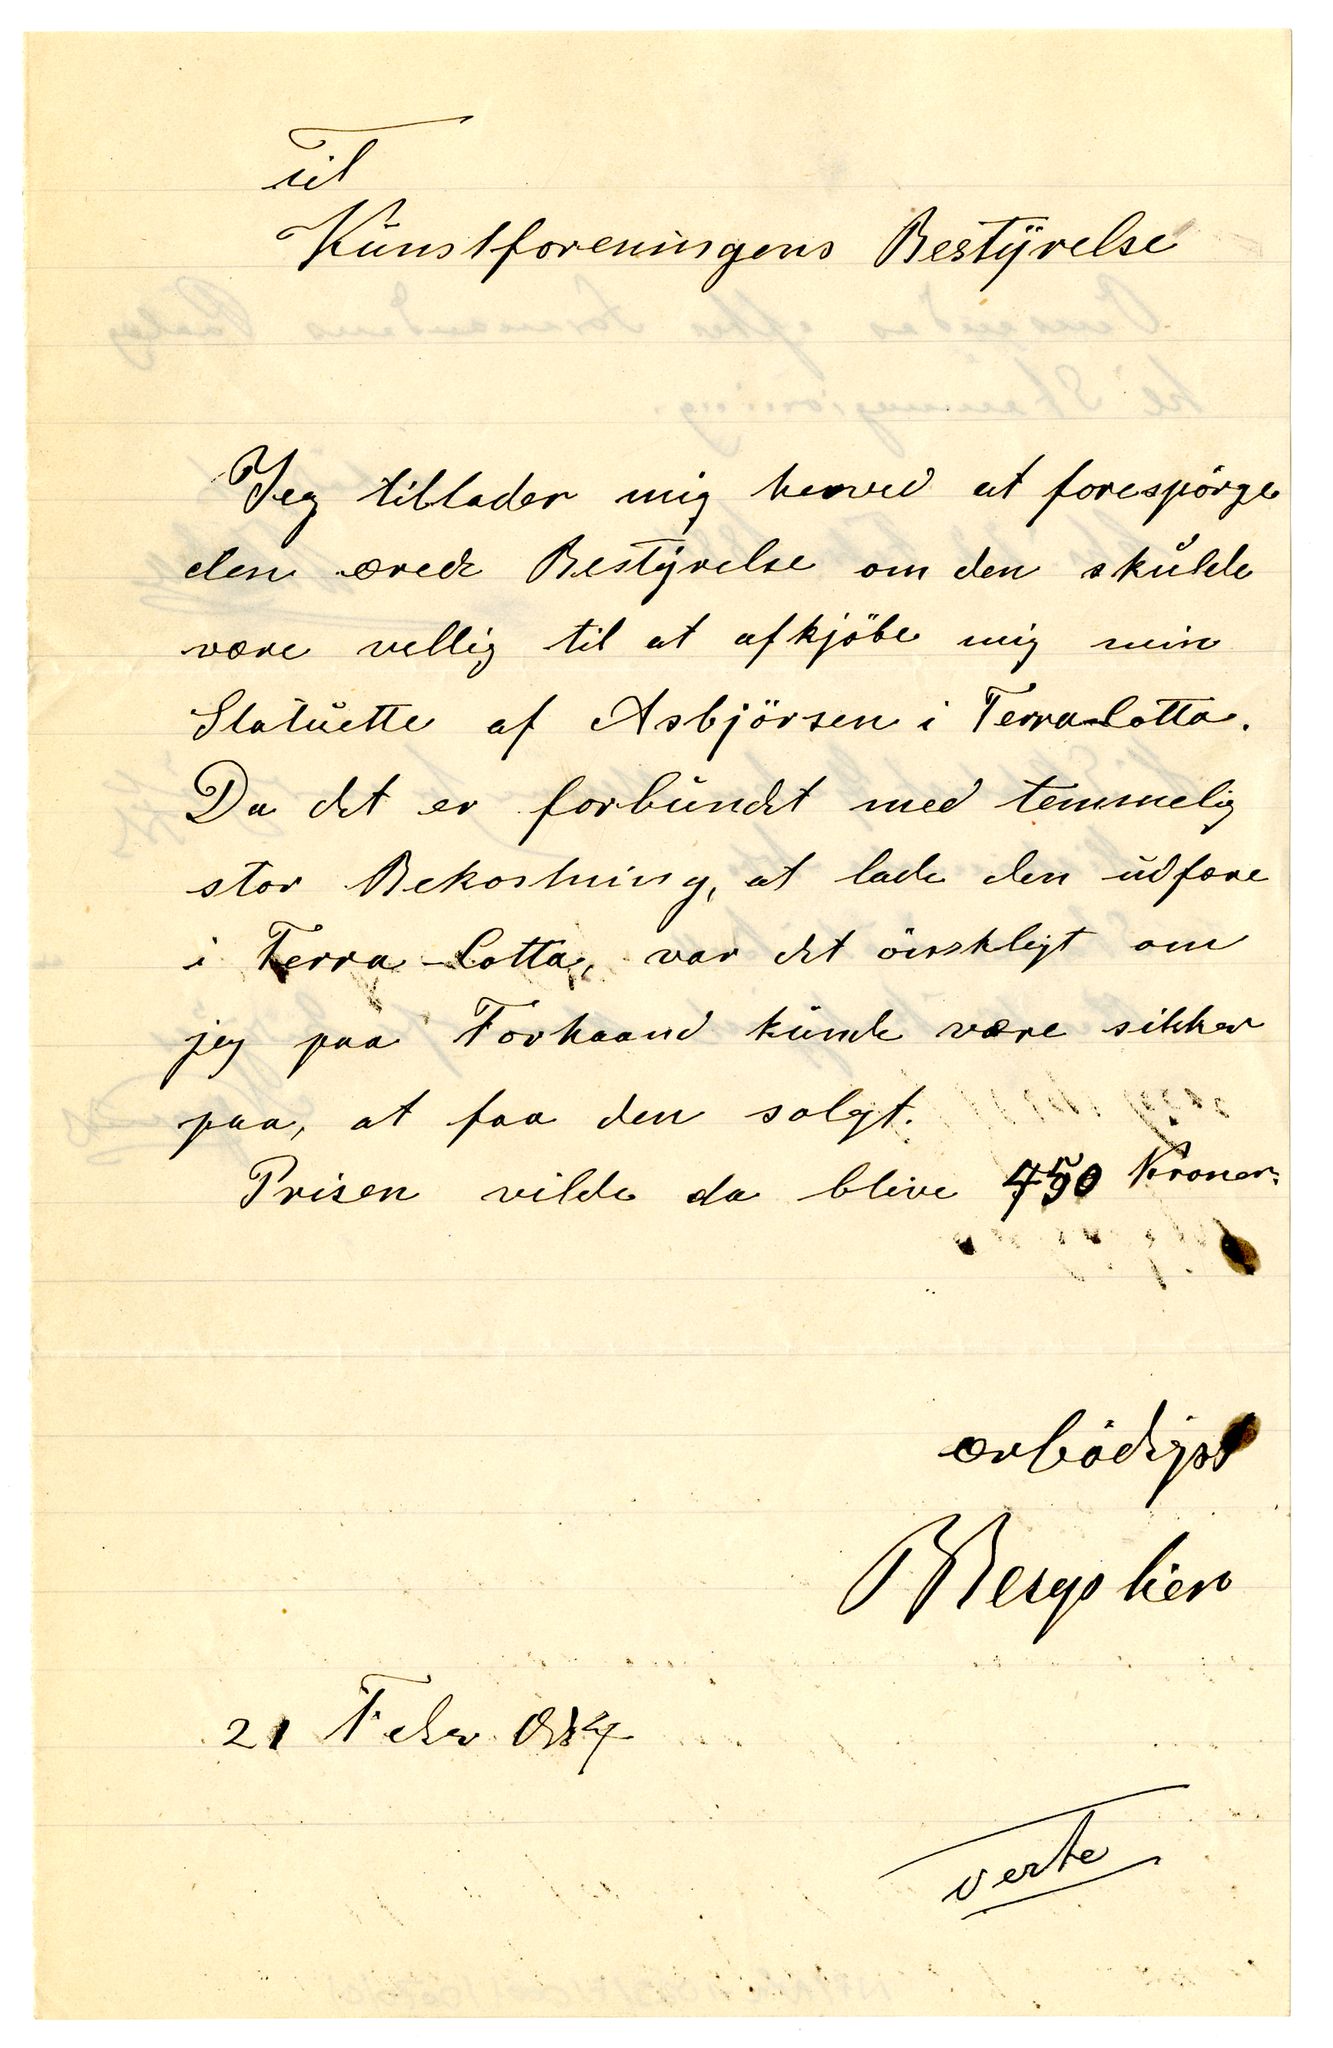 Til
Kunstforeningens Bestyrelse
Jeg tillader mig herved at forespörge
den ærede Bestyrelse om den skulde
være vellig til at afkjöbe mig min
Statuette af Asbjörsen i Terra-Cotta.
Da det er forbundet med temmelig
stor Bekostning, at lade den udføre
i Terra-Cotta, var det önskligt om
jeg paa Forhaand kunde være sikker
paa, at faa den solgt.
Prisen vilde da blive 450 Kroner.
ærbödigst
B Bergslien
21 Febr
verte